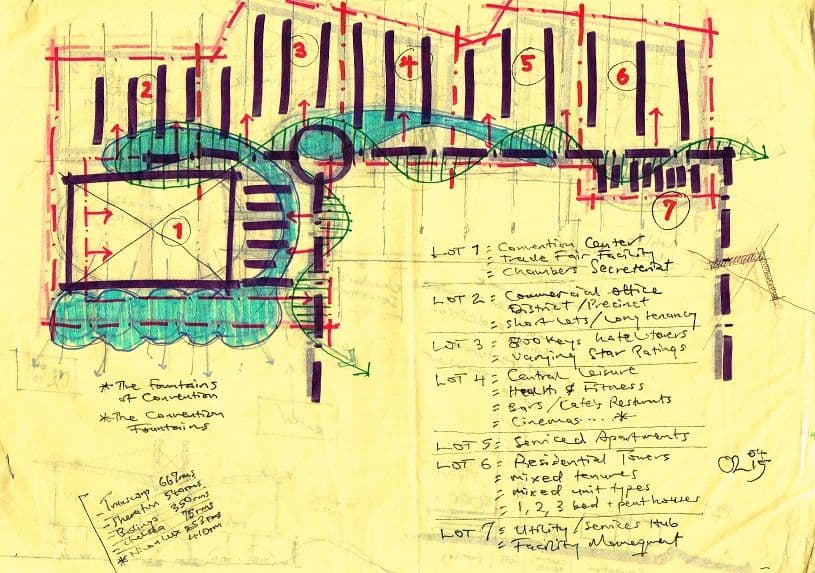 2
3
4
5
6
1
7
LOT 1 = Convention Center
= Trade Fair Facility
= Chambers Secretariat
LOT 2 = Commercial Office
District/Precinct
= Short Lets/Long tenancy
LOT 3 = 800 Keys Hotel Towers
= Varying Star Ratings
LOT 4 = Central Leisure
= Health & Fitness
= Bars/Cafes/Restrnts
= Cinemas....*
LOT 5 = Serviced Apartments
LOT 6 = Residential Towers
= mixed tenures
= mixed unit types
= 1, 2, 3 bed + penthouses
LOT 7 = Utility/Services Hub
= Facility Management
*The Fountains
of Convention
*The Convention
Fountains
- Transcorp 667rms
- Sheraton 540rms
350rms
- Chelsea 75rms
253rms
410rm
04